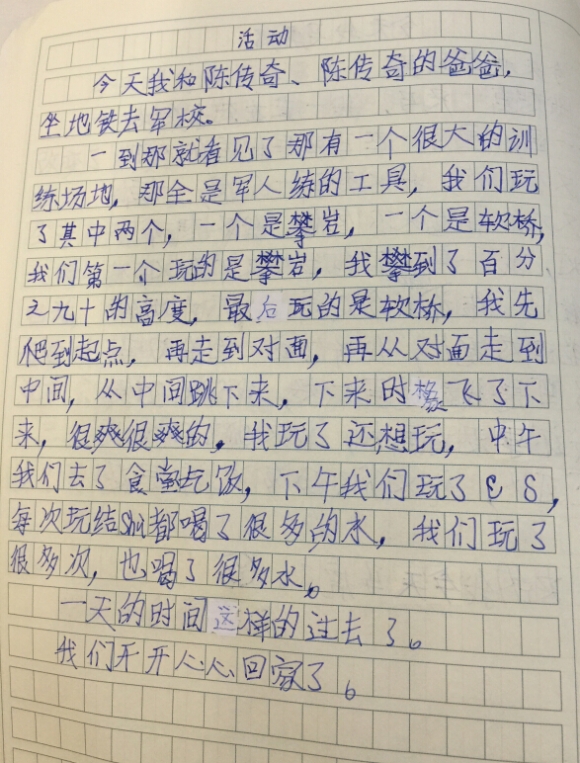 活动
今天我和陈传奇、陈传奇的爸爸,
坐地铁去军校。
一到那就看见了那有一个很大的训
练场地,那全是军人练的工具,我们玩
了其中两个,一个是攀岩,一个是软桥,
我们第一个玩的是攀岩,我攀到了百分
之九十的高度,最后玩的是软桥,我先
爬到起点,再走到对面,再从对面走到
中间,从中间跳下来,下来时像飞了下
来,很爽很爽的。我玩了还想玩,中午
我们去了食堂吃饭,下午我们玩了CS,
每次玩结shù都喝了很多的水,我们玩了
很多次,也喝了很多水。
一天的时间这样的过去了。
我们开开心心回家了。